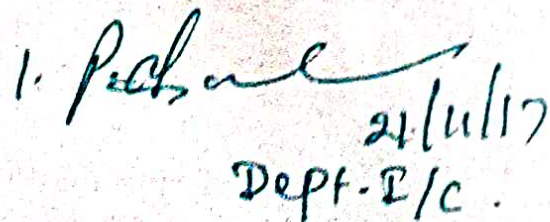 1.
21/11/17
Dept. I/C.